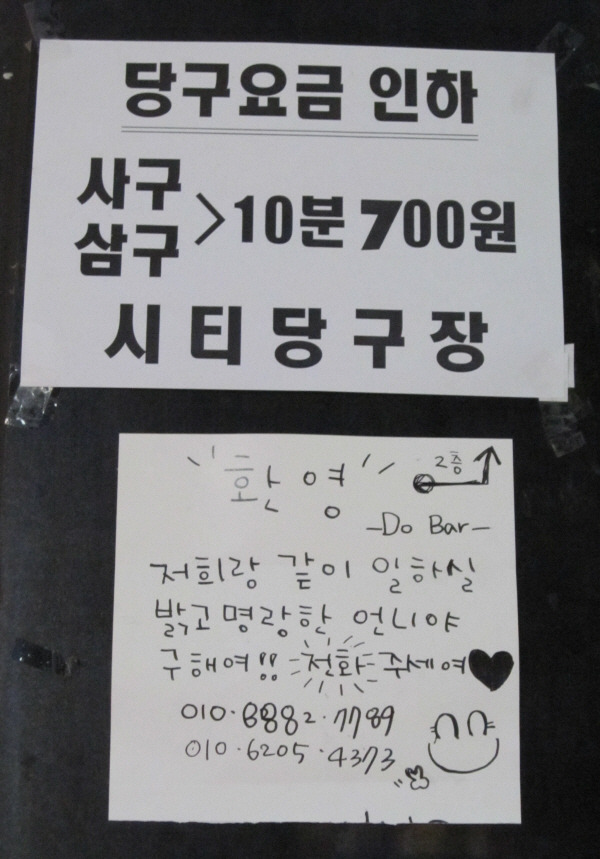 당구요금 인하
사구
삼구 > 10분 700원
시티당구장
환영 2층
-Do Bar-
저희랑 같이 일하실
밝고 명랑한 언니야
구해여!! 전화 주세여
010·8882·7789
010·6205·4373